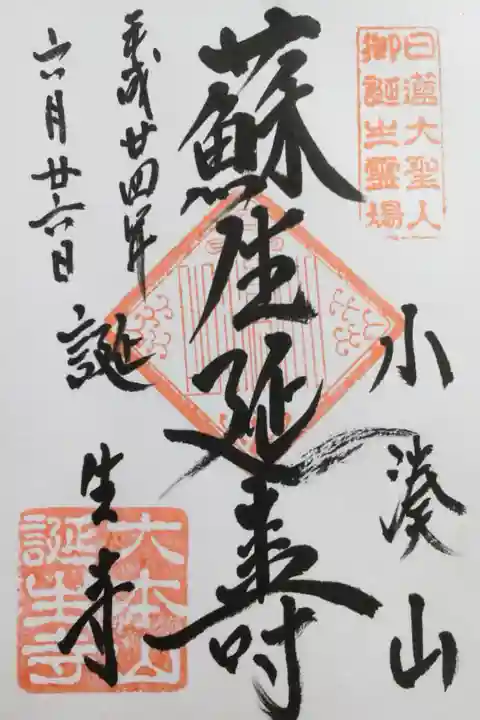 日蓮大聖人
御誕生霊場
小湊山
蘇生延壽
平成廿四年
六月廿六日
誕生寺
大本山
誕生寺